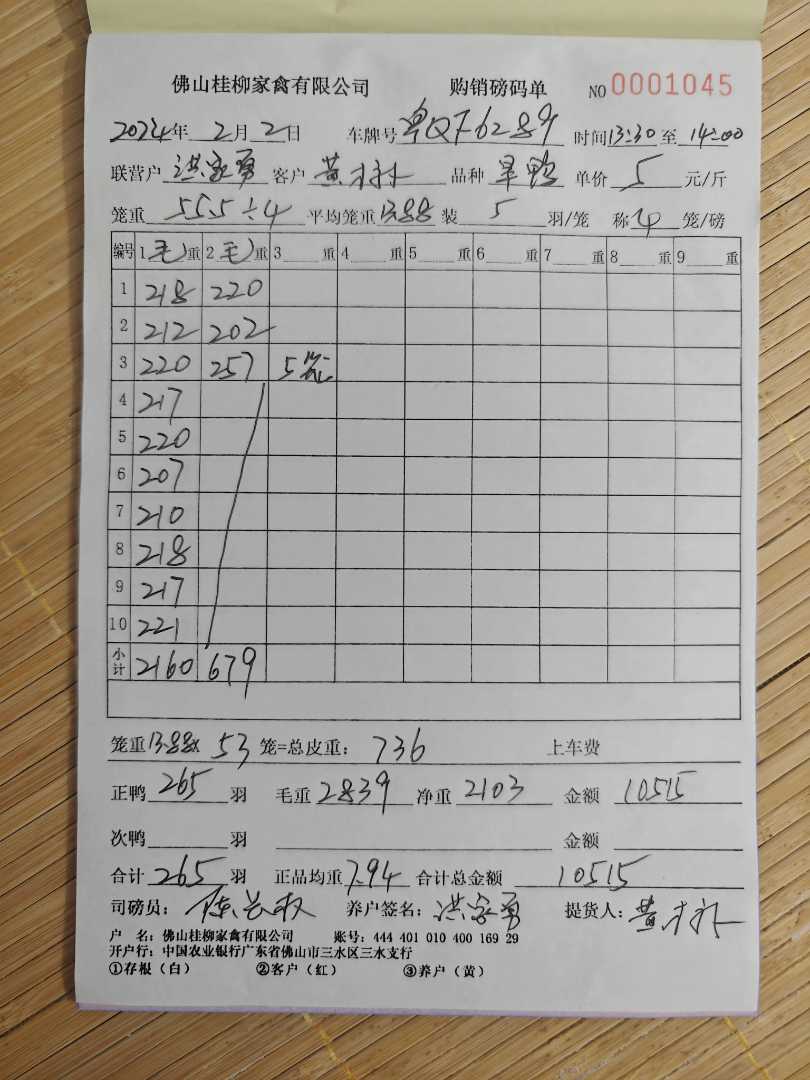 佛山桂柳家禽有限公司 购销磅码单 NO 0001045
2024年 2月2日 车牌号 粤Q76289 时间 13:30 至 14:00
联营户 洪家勇 客户 黄木林 品种 旱鸭 单价 5 元/斤
笼重 55.5÷4 平均笼重 13.88 装 5 羽/笼 称 4 笼/磅
编号 1 毛重 2 毛重 3 重 4 重 5 重 6 重 7 重 8 重 9 重
1 218 220
2 212 202
3 220 257 5笼
4 217
5 220
6 207
7 210
8 218
9 217
10 221
小计 2160 679
笼重 13.88x 53 笼=总皮重: 736 上车费
正鸭 265 羽 毛重 2839 净重 2103 金额 10515
次鸭 羽 金额
合计 265 羽 正品均重 7.94 合计总金额 10515
司磅员: 陈 养户签名: 洪家勇 提货人: 黄木林
户 名: 佛山桂柳家禽有限公司 账号: 444 401 010 400 169 29
开户行: 中国农业银行广东省佛山市三水区三水支行
①存根(白) ②客户(红) ③养户(黄)